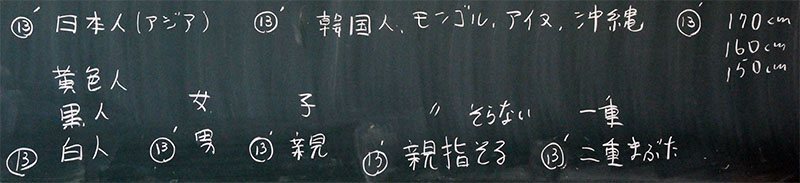 ⑬' 日本人(アジア) ⑬' 韓国人、モンゴル、アイヌ、沖縄 ⑬' 170cm
160cm
150cm
黄色人
黒人 女 子 〃 そらない 一重
⑬ 白人 ⑬' 男 ⑬' 親 ⑬' 親指そる ⑬' 二重まぶた